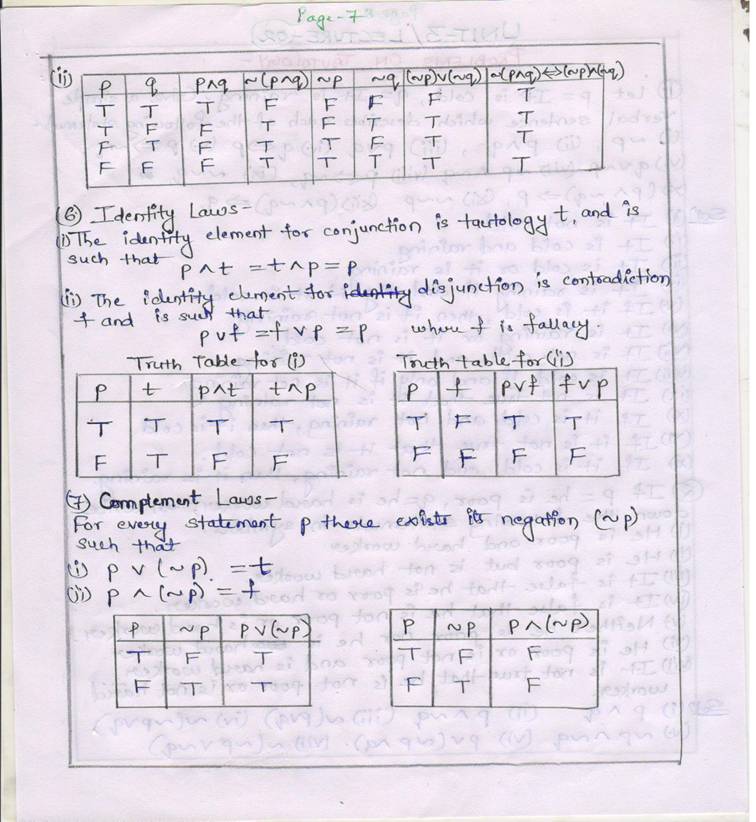 Page-7
(ii)
p q p∧q ~(p∧q) ~p ~q (~p)∨(~q) ~(p∧q)⇔(~p)∧(~q)
T T T F F F F T
T F F T F T T T
F T F T T F T T
F F F T T T T T
(6) Identity Laws-
(i) The identity element for conjunction is tautology t, and is
such that
p∧t = t∧p = p
(ii) The identity element for identity disjunction is contradiction
f and is such that
p∨f = f∨p = p where f is fallacy.
Truth Table for (i)
p t p∧t t∧p
T T T T
F T F F
Truth table for (ii)
p f p∨f f∨p
T F T T
F F F F
(7) Complement Laws-
For every statement p there exists its negation (~p)
such that
(i) p ∨ (~p) = t
(ii) p ∧ (~p) = f
p ~p p∨(~p)
T F T
F T T
p ~p p∧(~p)
T F F
F T F